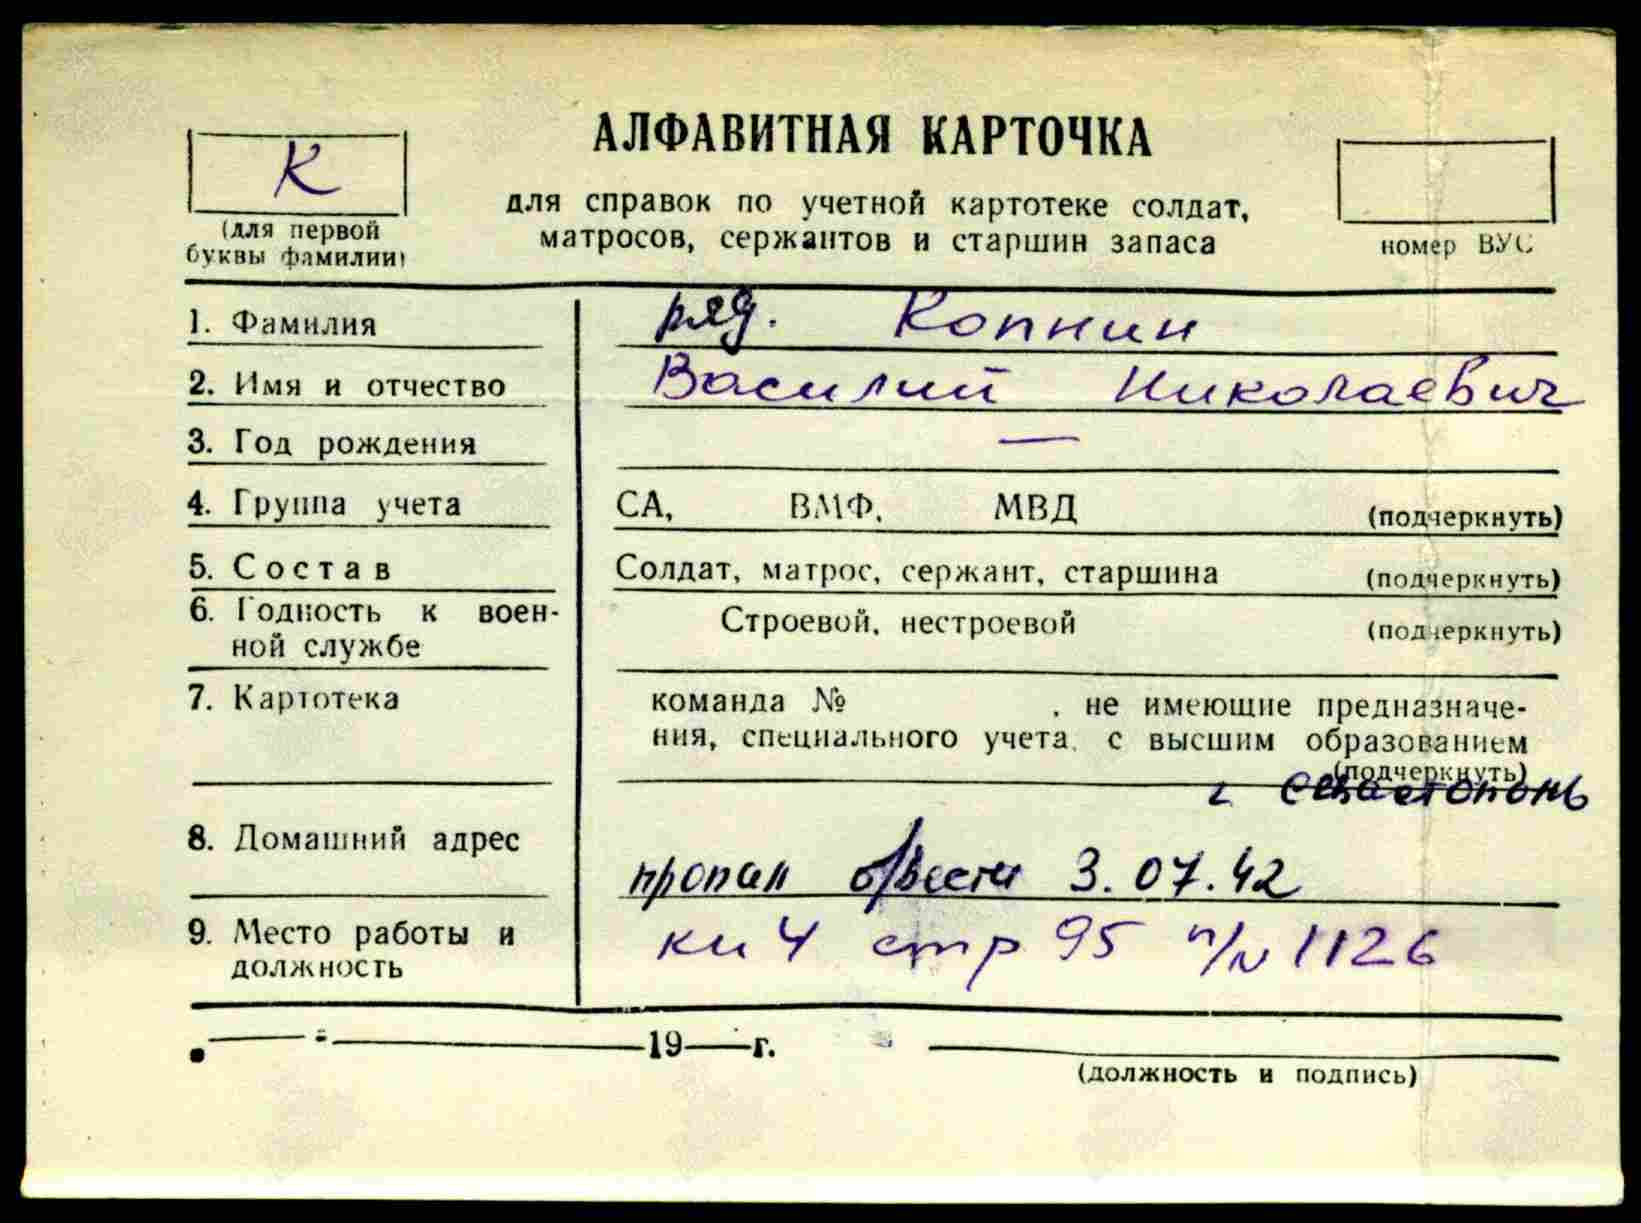 АЛФАВИТНАЯ КАРТОЧКА
К
для справок по учетной картотеке солдат,
матросов, сержантов и старшин запаса
(для первой
буквы фамилии)
номер ВУС
1. Фамилия ряд. Копнин
2. Имя и отчество Василий Николаевич
3. Год рождения —
4. Группа учета СА, ВМФ, МВД (подчеркнуть)
5. Состав Солдат, матрос, сержант, старшина (подчеркнуть)
6. Годность к воен-
ной службе Строевой, нестроевой (подчеркнуть)
7. Картотека команда № , не имеющие предназначе-
ния, специального учета, с высшим образованием
(подчеркнуть)
г Севастополь
8. Домашний адрес пропал б/вести 3.07.42
9. Место работы и
должность кн 4 стр 95 п/N 1126
19 г.
(должность и подпись)